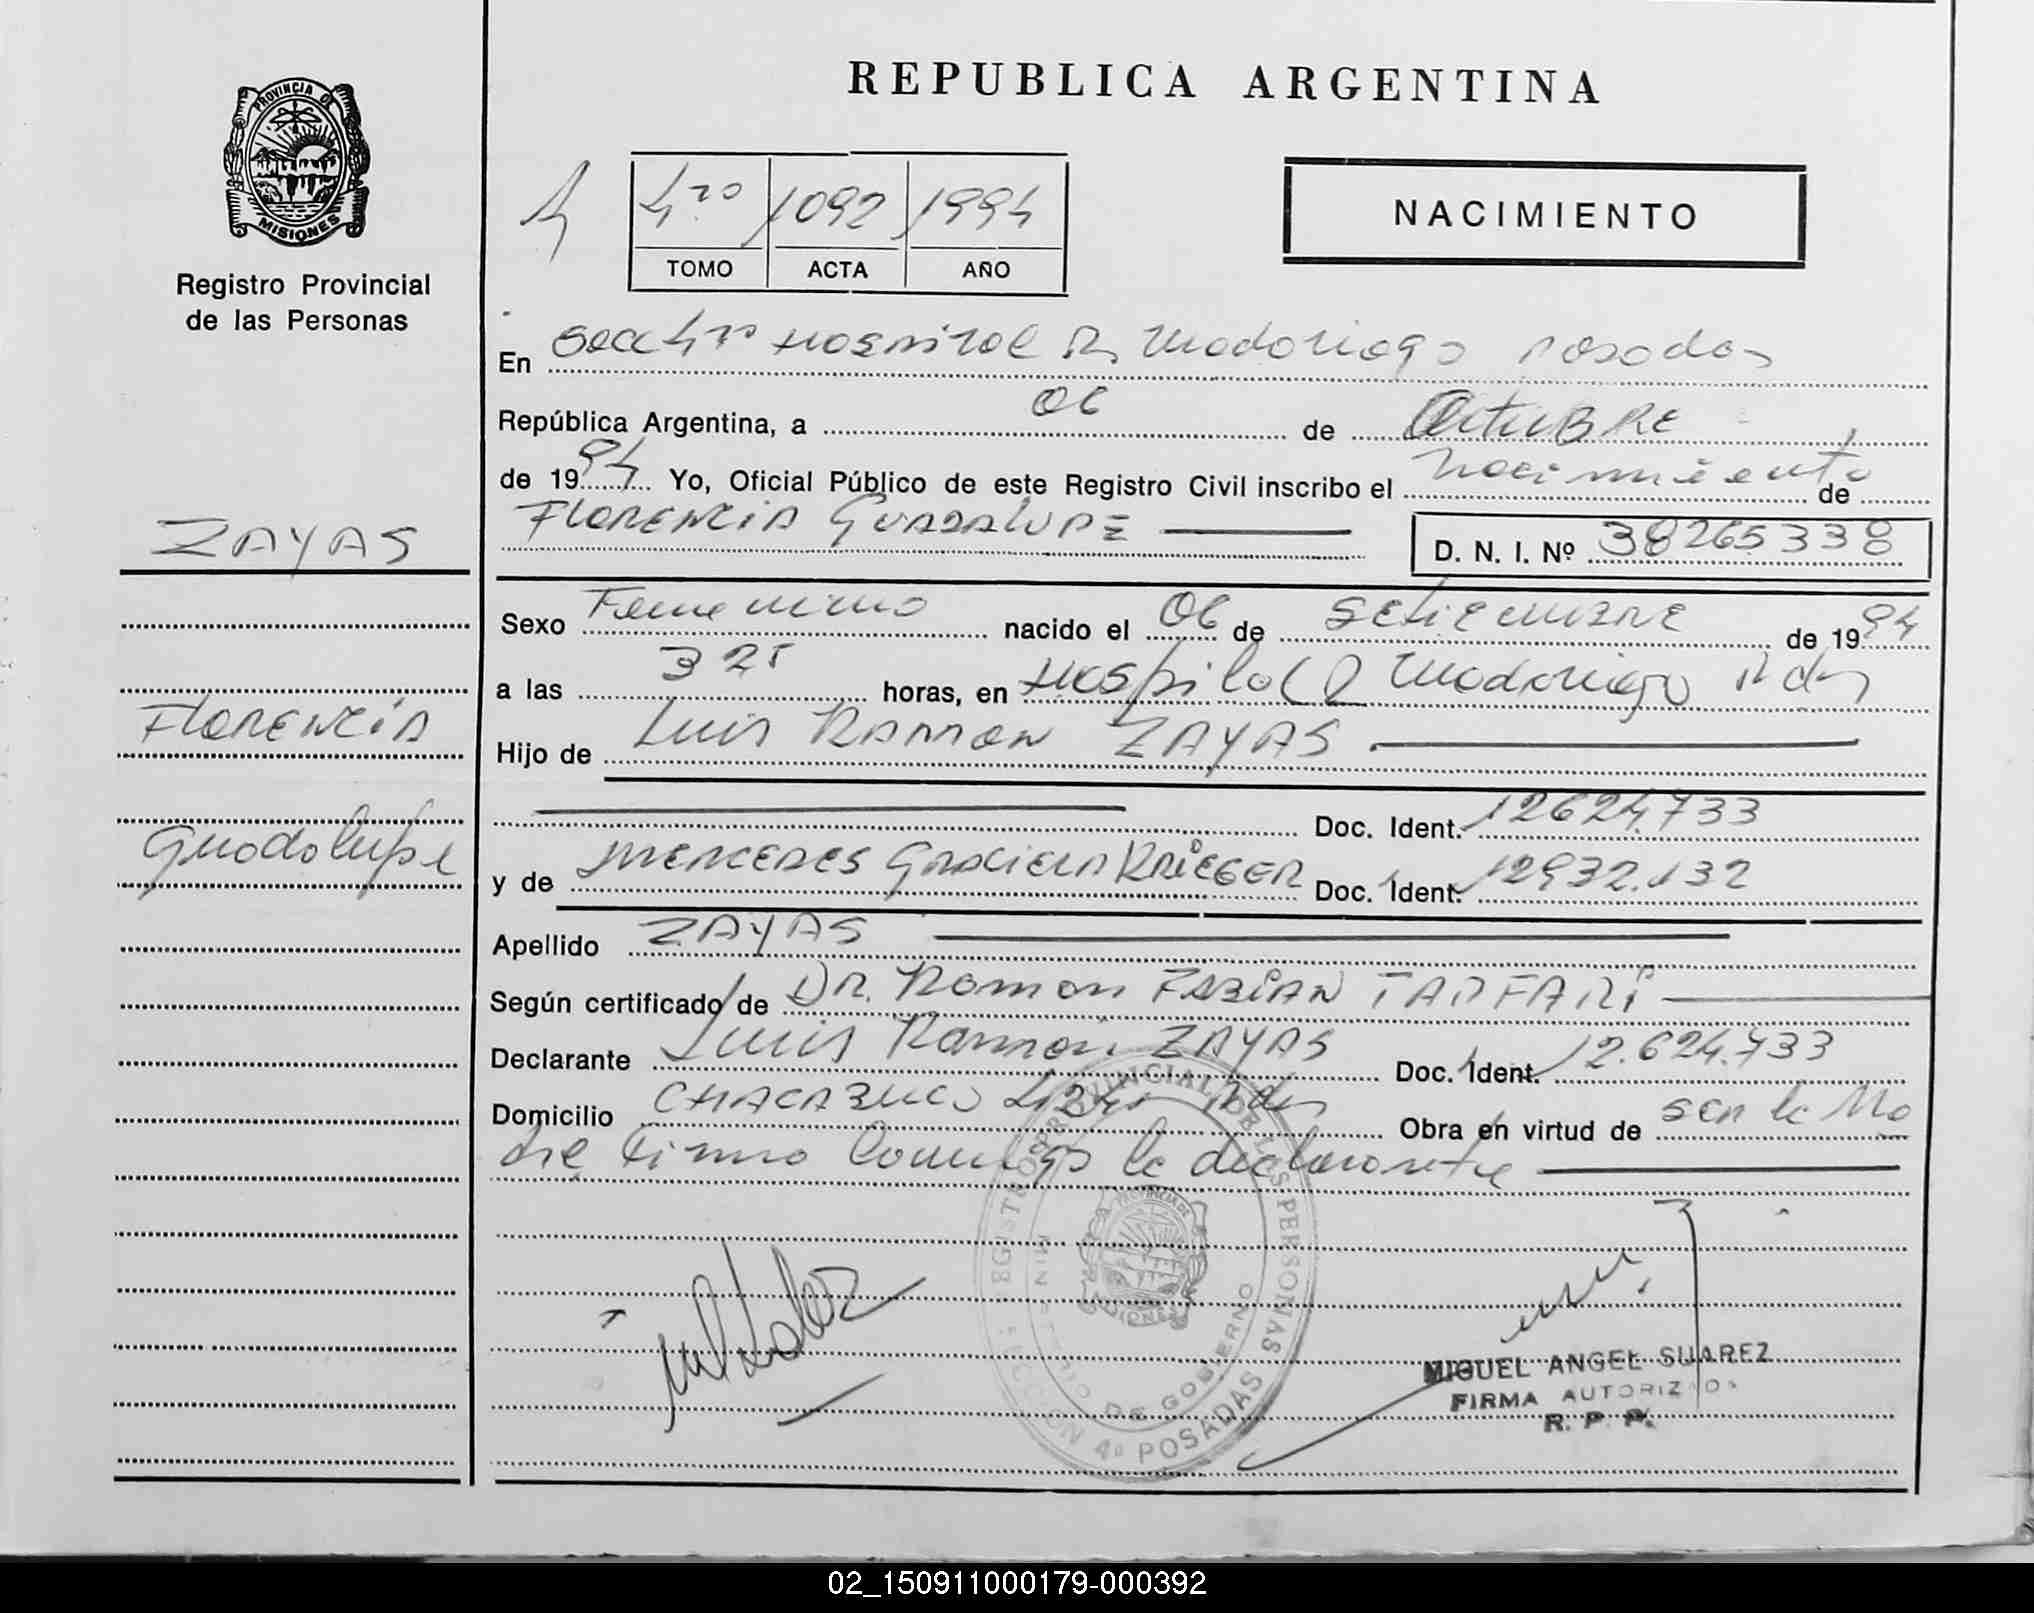 REPUBLICA ARGENTINA
PROVINCIA DE
MISIONES
Registro Provincial
de las Personas
4 4ro 1092 1994
TOMO ACTA AÑO
NACIMIENTO
En Secc 4ta Hospital R. Madariaga Posadas
República Argentina, a 06 de OctuBRE
de 1994 Yo, Oficial Público de este Registro Civil inscribo el nacimiento de
FLORENCIA GUADALUPE
D. N. I. Nº 38265338
ZAYAS
Florencia
Guadalupe
Sexo Femenino nacido el 06 de SEtiEMBRE de 1994
a las 325 horas, en Hospital R Madariaga Pdas
Hijo de Luis RAMON ZAYAS
Doc. Ident. 12624.733
y de MERCEDES GRACIELA KRIEGER Doc. Ident. 12932.132
Apellido ZAYAS
Según certificado de DR. Ramon FABIAN TARFARI
Declarante Luis Ramon ZAYAS Doc. Ident. 12.624.733
Domicilio CHACABUCO Pdas Obra en virtud de ser la Ma
dre firma conmigo la declarante
REGISTRO PROVINCIAL DE LAS PERSONAS
MINISTERIO DE GOBIERNO
SECCION 4ª POSADAS
MIGUEL ANGEL SUAREZ
FIRMA AUTORIZADA
R. P. P.
02_150911000179-000392